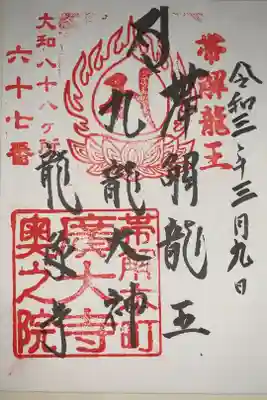 令和三年三月九日
帯解龍王
帯解龍王
九龍大神
龍象寺
大和八十八ヶ所
六十七番
帯解本町
廣大寺
奥之院